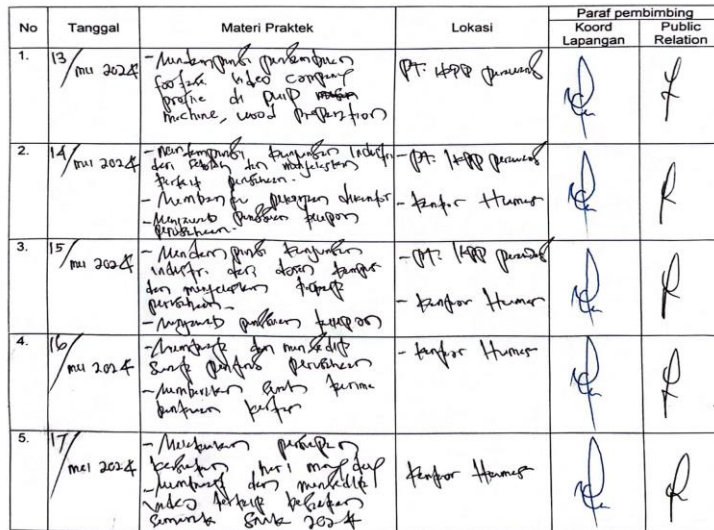 No Tanggal Materi Praktek Lokasi Paraf pembimbing
Koord Lapangan Public Relation
1. 13/mei 2024
- Mendampingi
footage video company
profile di pulp
machine, wood preparation
PT. IKPP perawang
2. 14/mei 2024
- Mendampingi kunjungan Industri
dari sekolah dan menjelaskan
terkait perusahaan.
- Membantu pekerjaan dikantor
- Menjawab panggilan telepon
perusahaan.
- PT. IKPP perawang
- kantor Humas
3. 15/mei 2024
- Mendampingi kunjungan
industri dari dosen kampus
dan menjelaskan terkait
perusahaan.
- Menjawab panggilan telepon
- PT. IKPP perawang
- kantor Humas
4. 16/mei 2024
- dan mengedit
surat perusahaan
- Memberikan terima
bantuan
- kantor Humas
5. 17/mei 2024
- Melakukan persiapan
kegiatan hari may day
- Membuat dan mengedit
video terkait kegiatan
2024
kantor Humas